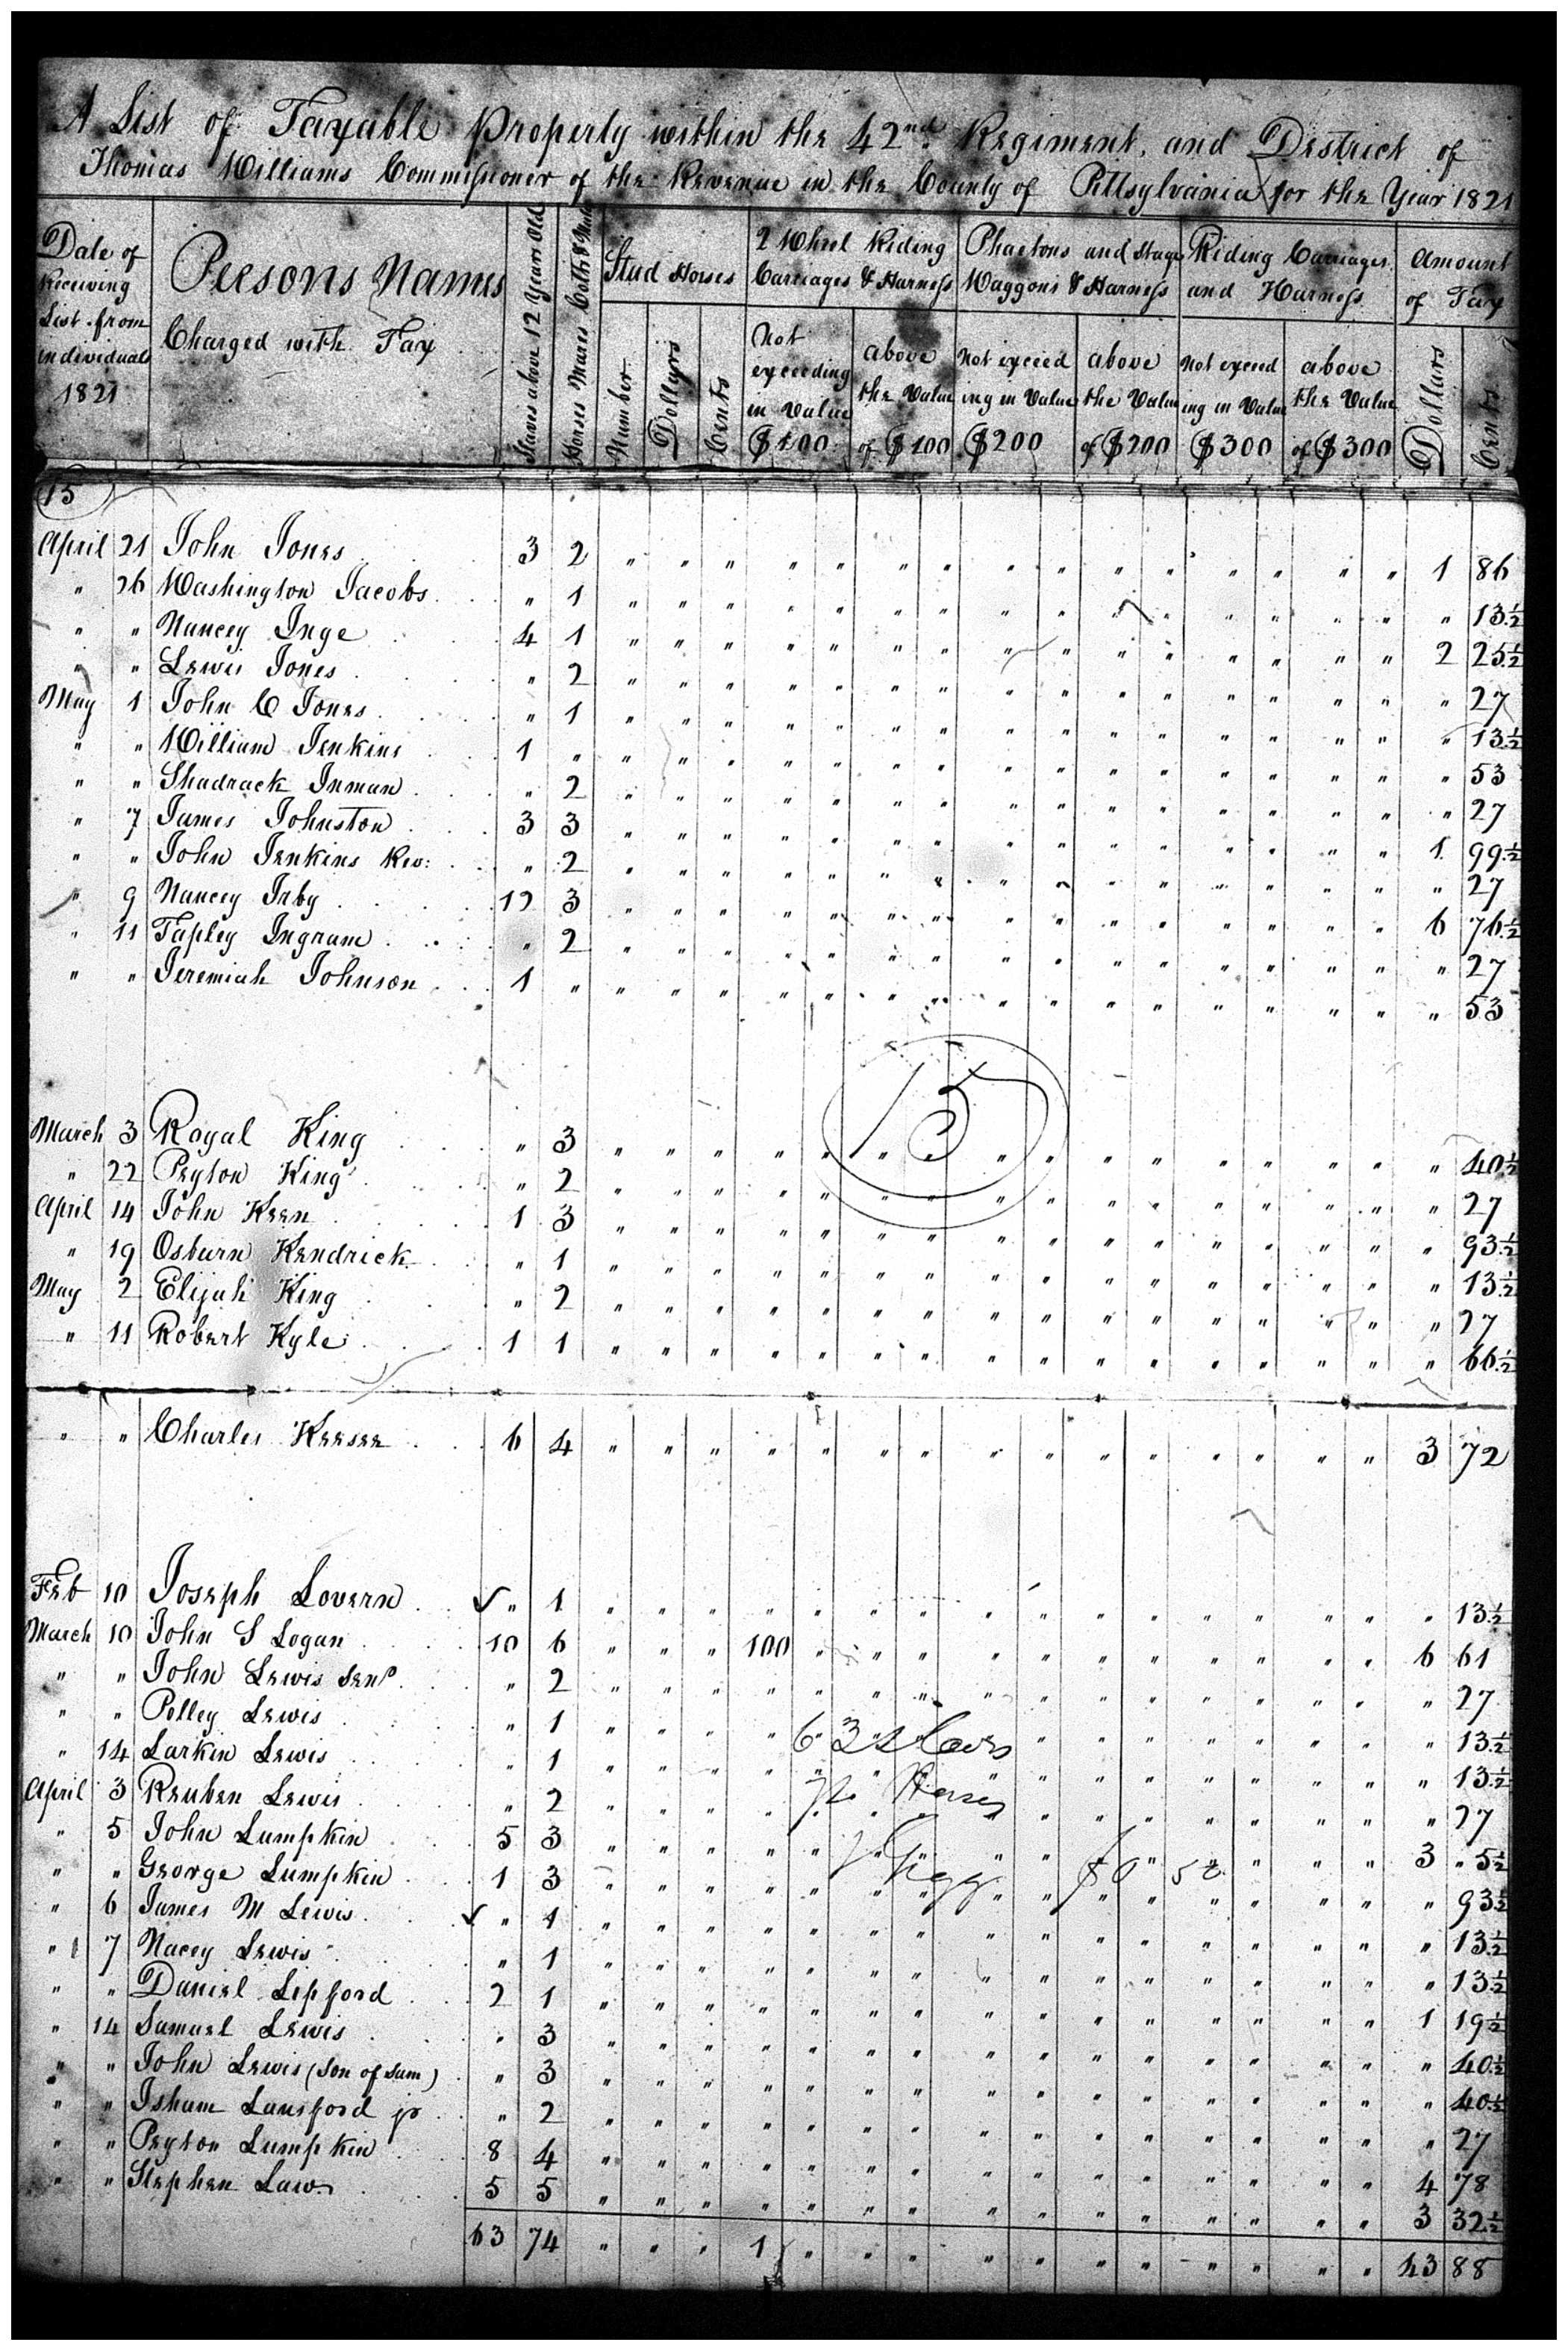 A List of Taxable Property within the 42nd Regiment, and District of
Thomas Williams Commissioner of the Revenue in the County of Pittsylvania for the Year 1821
Date of Receiving List from individuals 1821
Persons Names Charged with Tax
Slaves above 12 Years Old
Horses Mares Colts & Mules
Stud Horses
Number
Dollars
Cents
2 Wheel Riding Carriages & Harness
Not exceeding in value $100
above the Value of $100
Phaetons and Stage Waggons & Harness
Not exceeding in Value $200
above the Value of $200
Riding Carriages and Harness
Not exceeding in Value $300
above the Value of $300
Amount of Tax
Dollars
Cents
15
April 21 John Jones 3 2 " " " " " " " " " " " " " " " 1 86
" 26 Washington Jacobs " 1 " " " " " " " " " " " " " " " " 13½
" " Nancey Inge 4 1 " " " " " " " " " " " " " " " 2 25½
" " Lewis Jones " 2 " " " " " " " " " " " " " " " " 27
May 1 John C Jones " 1 " " " " " " " " " " " " " " " " 13½
" " William Jenkins 1 " " " " " " " " " " " " " " " " " 53
" " Shadrack Inman " 2 " " " " " " " " " " " " " " " " 27
" 7 James Johnston 3 3 " " " " " " " " " " " " " " " 1 99½
" " John Jenkins Rev: " 2 " " " " " " " " " " " " " " " " 27
" 9 Nancey Irby 12 3 " " " " " " " " " " " " " " " 6 76½
" 11 Tapley Ingram " 2 " " " " " " " " " " " " " " " " 27
" " Jeremiah Johnson 1 " " " " " " " " " " " " " " " " " 53
15
March 3 Royal King " 3 " " " " " " " " " " " " " " " " 40½
" 22 Peyton King " 2 " " " " " " " " " " " " " " " " 27
April 14 John Keen 1 3 " " " " " " " " " " " " " " " " 93½
" 19 Osburn Kendrick " 1 " " " " " " " " " " " " " " " " 13½
May 2 Elijah King " 2 " " " " " " " " " " " " " " " " 27
" 11 Robert Kyle 1 1 " " " " " " " " " " " " " " " " 66½
" " Charles Keesee 6 4 " " " " " " " " " " " " " " " 3 72
Feb 10 Joseph Lovern ✓ " 1 " " " " " " " " " " " " " " " " 13½
March 10 John S Logan 10 6 " " " 100 " " " " " " " " " " " 6 61
" " John Lewis Senr " 2 " " " " " " " " " " " " " " " " 27
" " Polley Lewis " 1 " " " " " " " " " " " " " " " " 13½
63 Slaves
" 14 Larkin Lewis " 1 " " " " " " " " " " " " " " " " 13½
Horses
April 3 Reuben Lewis " 2 " " " " " " " " " " " " " " " " 27
" 5 John Lumpkin 5 3 " " " " " " " " " " " " " " " 3 " 5½
1 Gigg
" " George Lumpkin 1 3 " " " " " " " " " " " " " " " " 93½
" 6 James M Lewis ✓ " 1 " " " " " " " " " " " " " " " " 13½
" 7 Nacey Lewis " 1 " " " " " " " " " " " " " " " " 13½
" " Daniel Lipford 2 1 " " " " " " " " " " " " " " " 1 19½
" 14 Samuel Lewis " 3 " " " " " " " " " " " " " " " " 40½
" " John Lewis (Son of Sam) " 3 " " " " " " " " " " " " " " " " 40½
" " Isham Lansford jr " 2 " " " " " " " " " " " " " " " " 27
" " Peyton Lumpkin 8 4 " " " " " " " " " " " " " " " 4 78
" " Stephen Law 5 5 " " " " " " " " " " " " " " " 3 32½
63 74 " " " 1 " " " " " " " " " " " 43 88